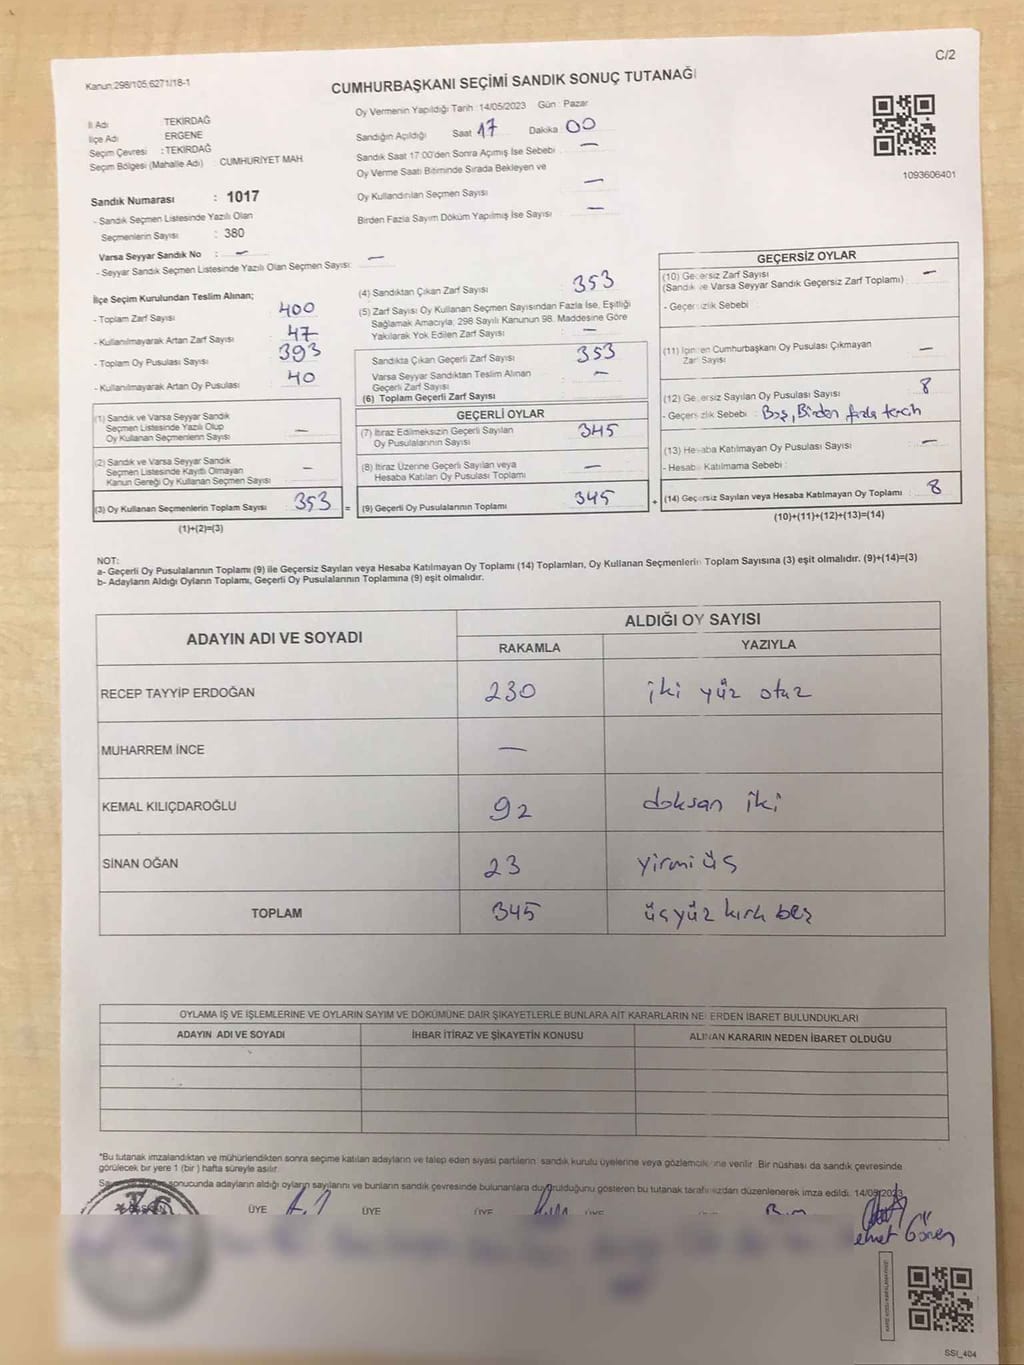 C/2
Kanun:298/105;6271/18-1
CUMHURBAŞKANI SEÇİMİ SANDIK SONUÇ TUTANAĞI
İl Adı TEKİRDAĞ
İlçe Adı ERGENE
Seçim Çevresi : TEKİRDAĞ
Seçim Bölgesi (Mahalle Adı) : CUMHURİYET MAH.
Sandık Numarası : 1017
- Sandık Seçmen Listesinde Yazılı Olan
Seçmenlerin Sayısı : 380
Varsa Seyyar Sandık No : —
- Seyyar Sandık Seçmen Listesinde Yazılı Olan Seçmen Sayısı: —
Oy Vermenin Yapıldığı Tarih : 14/05/2023 Gün : Pazar
Sandığın Açıldığı Saat 17 Dakika 00
Sandık Saat 17:00'den Sonra Açımış İse Sebebi —
Oy Verme Saati Bitiminde Sırada Bekleyen ve
Oy Kullandırılan Seçmen Sayısı —
Birden Fazla Sayım Döküm Yapılmış İse Sayısı —
1093606401
İlçe Seçim Kurulundan Teslim Alınan;
- Toplam Zarf Sayısı : 400
- Kullanılmayarak Artan Zarf Sayısı : 47
- Toplam Oy Pusulası Sayısı : 393
- Kullanılmayarak Artan Oy Pusulası : 40
(1) Sandık ve Varsa Seyyar Sandık
Seçmen Listesinde Yazılı Olup
Oy Kullanan Seçmenlerin Sayısı : —
(2) Sandık ve Varsa Seyyar Sandık
Seçmen Listesinde Kayıtlı Olmayan
Kanun Gereği Oy Kullanan Seçmen Sayısı : —
(3) Oy Kullanan Seçmenlerin Toplam Sayısı : 353 =
(1)+(2)=(3)
(4) Sandıktan Çıkan Zarf Sayısı : 353
(5) Zarf Sayısı Oy Kullanan Seçmen Sayısından Fazla İse, Eşitliği
Sağlamak Amacıyla, 298 Sayılı Kanunun 98. Maddesine Göre
Yakılarak Yok Edilen Zarf Sayısı : —
Sandıkta Çıkan Geçerli Zarf Sayısı : 353
Varsa Seyyar Sandıktan Teslim Alınan
Geçerli Zarf Sayısı : —
(6) Toplam Geçerli Zarf Sayısı
GEÇERLİ OYLAR
(7) İtiraz Edilmeksizin Geçerli Sayılan
Oy Pusulalarının Sayısı : 345
(8) İtiraz Üzerine Geçerli Sayılan veya
Hesaba Katılan Oy Pusulası Toplamı : —
(9) Geçerli Oy Pusulalarının Toplamı : 345 +
GEÇERSİZ OYLAR
(10) Geçersiz Zarf Sayısı —
(Sandık ve Varsa Seyyar Sandık Geçersiz Zarf Toplamı)
- Geçersizlik Sebebi :
(11) İçinden Cumhurbaşkanı Oy Pusulası Çıkmayan
Zarf Sayısı —
(12) Geçersiz Sayılan Oy Pusulası Sayısı : 8
- Geçersizlik Sebebi : Boş, Birden fazla tercih
(13) Hesaba Katılmayan Oy Pusulası Sayısı —
- Hesaba Katılmama Sebebi :
(14) Geçersiz Sayılan veya Hesaba Katılmayan Oy Toplamı : 8
(10)+(11)+(12)+(13)=(14)
NOT:
a- Geçerli Oy Pusulalarının Toplamı (9) ile Geçersiz Sayılan veya Hesaba Katılmayan Oy Toplamı (14) Toplamları, Oy Kullanan Seçmenlerin Toplam Sayısına (3) eşit olmalıdır. (9)+(14)=(3)
b- Adayların Aldığı Oyların Toplamı, Geçerli Oy Pusulalarının Toplamına (9) eşit olmalıdır.
ADAYIN ADI VE SOYADI ALDIĞI OY SAYISI
RAKAMLA YAZIYLA
RECEP TAYYİP ERDOĞAN 230 iki yüz otuz
MUHARREM İNCE —
KEMAL KILIÇDAROĞLU 92 doksan iki
SİNAN OĞAN 23 yirmi üç
TOPLAM 345 üçyüz kırk beş
OYLAMA İŞ VE İŞLEMLERİNE VE OYLARIN SAYIM VE DÖKÜMÜNE DAİR ŞİKAYETLERLE BUNLARA AİT KARARLARIN NELERDEN İBARET BULUNDUKLARI
ADAYIN ADI VE SOYADI İHBAR İTİRAZ VE ŞİKAYETİN KONUSU ALINAN KARARIN NEDEN İBARET OLDUĞU
*Bu tutanak imzalandıktan ve mühürlendikten sonra seçime katılan adayların ve talep eden siyasi partilerin sandık kurulu üyelerine veya gözlemcilerine verilir. Bir nüshası da sandık çevresinde
görülecek bir yere 1 (bir) hafta süreyle asılır.
sonucunda adayların aldığı oyların sayılarını ve bunların sandık çevresinde bulunanlara duyurulduğunu gösteren bu tutanak tarafımızdan düzenlenerek imza edildi. 14/05/2023
BAŞKAN ÜYE ÜYE ÜYE ÜYE
SSI_404